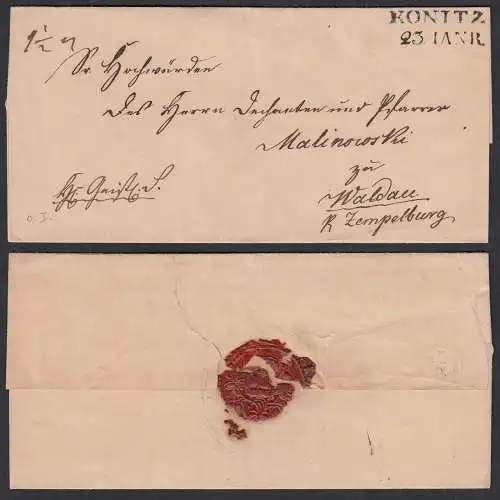 KONITZ
23 IANR.
1 1/2
Sr. Hochwürden
Des Herrn Dechanten und Pfarrer
Malinowski
zu
Waldau
p Zempelburg
Geistl. S.
o. I.